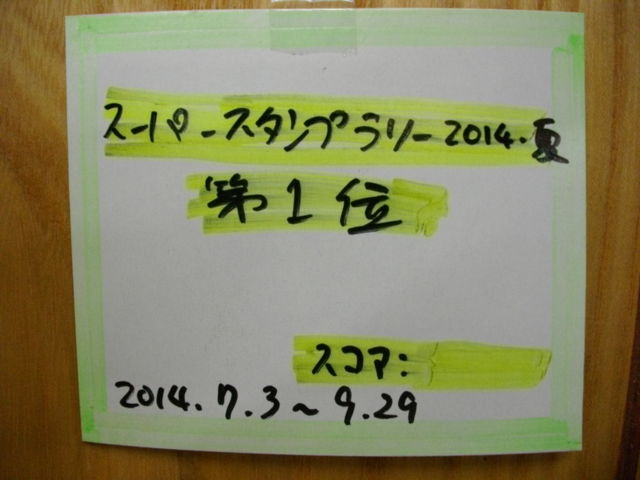 スーパースタンプラリー2014.夏
第1位
スコア:
2014.7.3～9.29